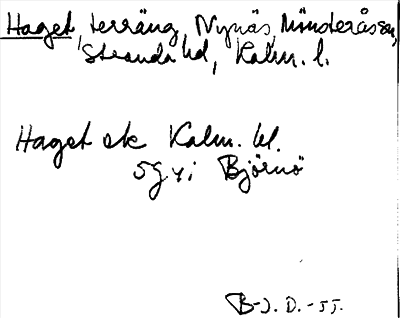 Haget, terräng, Nynäs, Mönsteråssn,
Stranda hd, Kalm. l.
Haget ek Kalm. bl.
5g yi Björnö
B-J. D. -55.